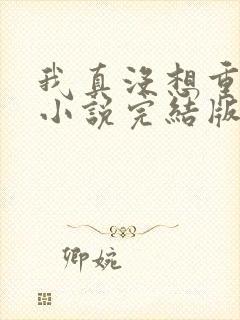 我真没想重
小说完结版
卿婉